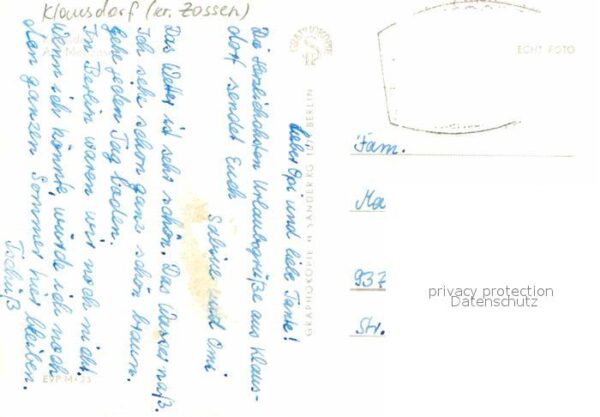 Klausdorf (kr. Zossen)
Lieber Opi und liebe Tante!
Die herzlichsten Urlaubsgrüße aus Klaus-
dorf sendet Euch
Sabine und Omi
Das Wetter ist sehr schön. Das Wasser naß.
Ich sehe schon ganz schön braun.
Gehe jeden Tag baden.
In Berlin waren wir noch nicht.
Wenn ich könnte, würde ich noch
den ganzen Sommer hier bleiben.
Tschüß
EVP M
GRAPHOKOPIE H. SANDER KG 1071 BERLIN
ECHT FOTO
Fam.
Ma
937
Str.
privacy protection
Datenschutz